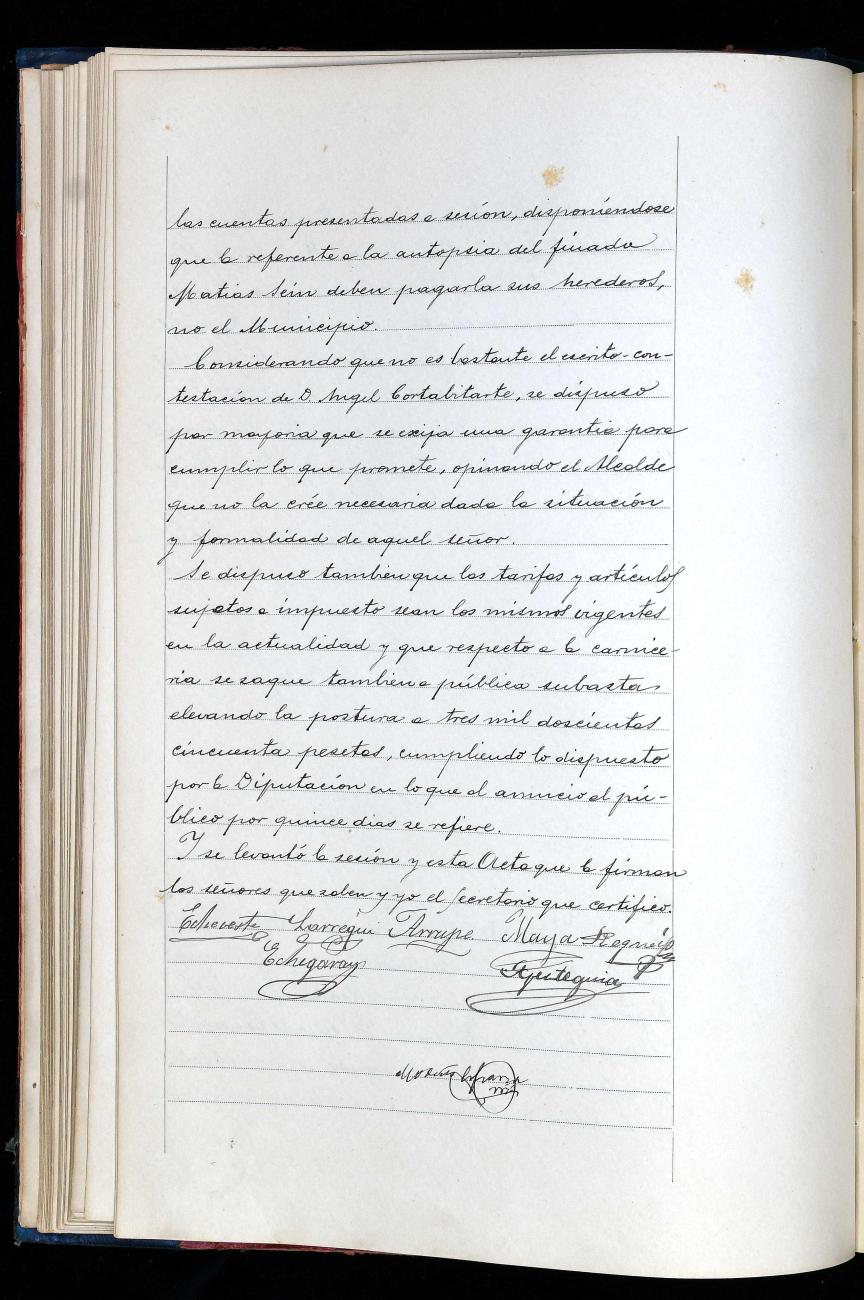 las cuentas presentadas a sesión, disponiéndose
que la referente a la autopsia del finado
Matias Sein deben pagarla sus herederos,
no el Municipio.
Considerando que no es bastante el escrito-con-
testación de D. Angel Cortabitarte, se dispuso
por mayoria que se exija una garantia para
cumplir lo que promete, opinando el Alcalde
que no la crée necesaria dada la situación
y formalidad de aquel señor.
Se dispuso tambien que las tarifas y artículos
sujetos a impuesto sean los mismos vigentes
en la actualidad y que respecto a la carnice-
ria se saque tambien a pública subasta
elevando la postura a tres mil doscientas
cincuenta pesetas, cumpliendo lo dispuesto
por la Diputación en lo que al anuncio al pú-
blico por quince dias se refiere.
Y se levantó la sesión y esta Acta que la firman
los señores que saben y yo el Secretario que certifico.
Echeveste Larregui Arrupe Maya
Echegaray Apesteguia